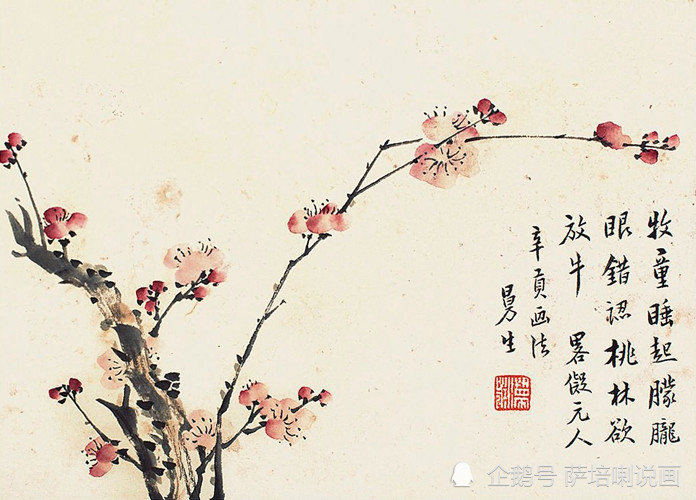 牧童睡起朦朧
眼錯認桃林欲
放牛 畧儗元人
辛貢画法
生
企鹅号 萨培喇说画